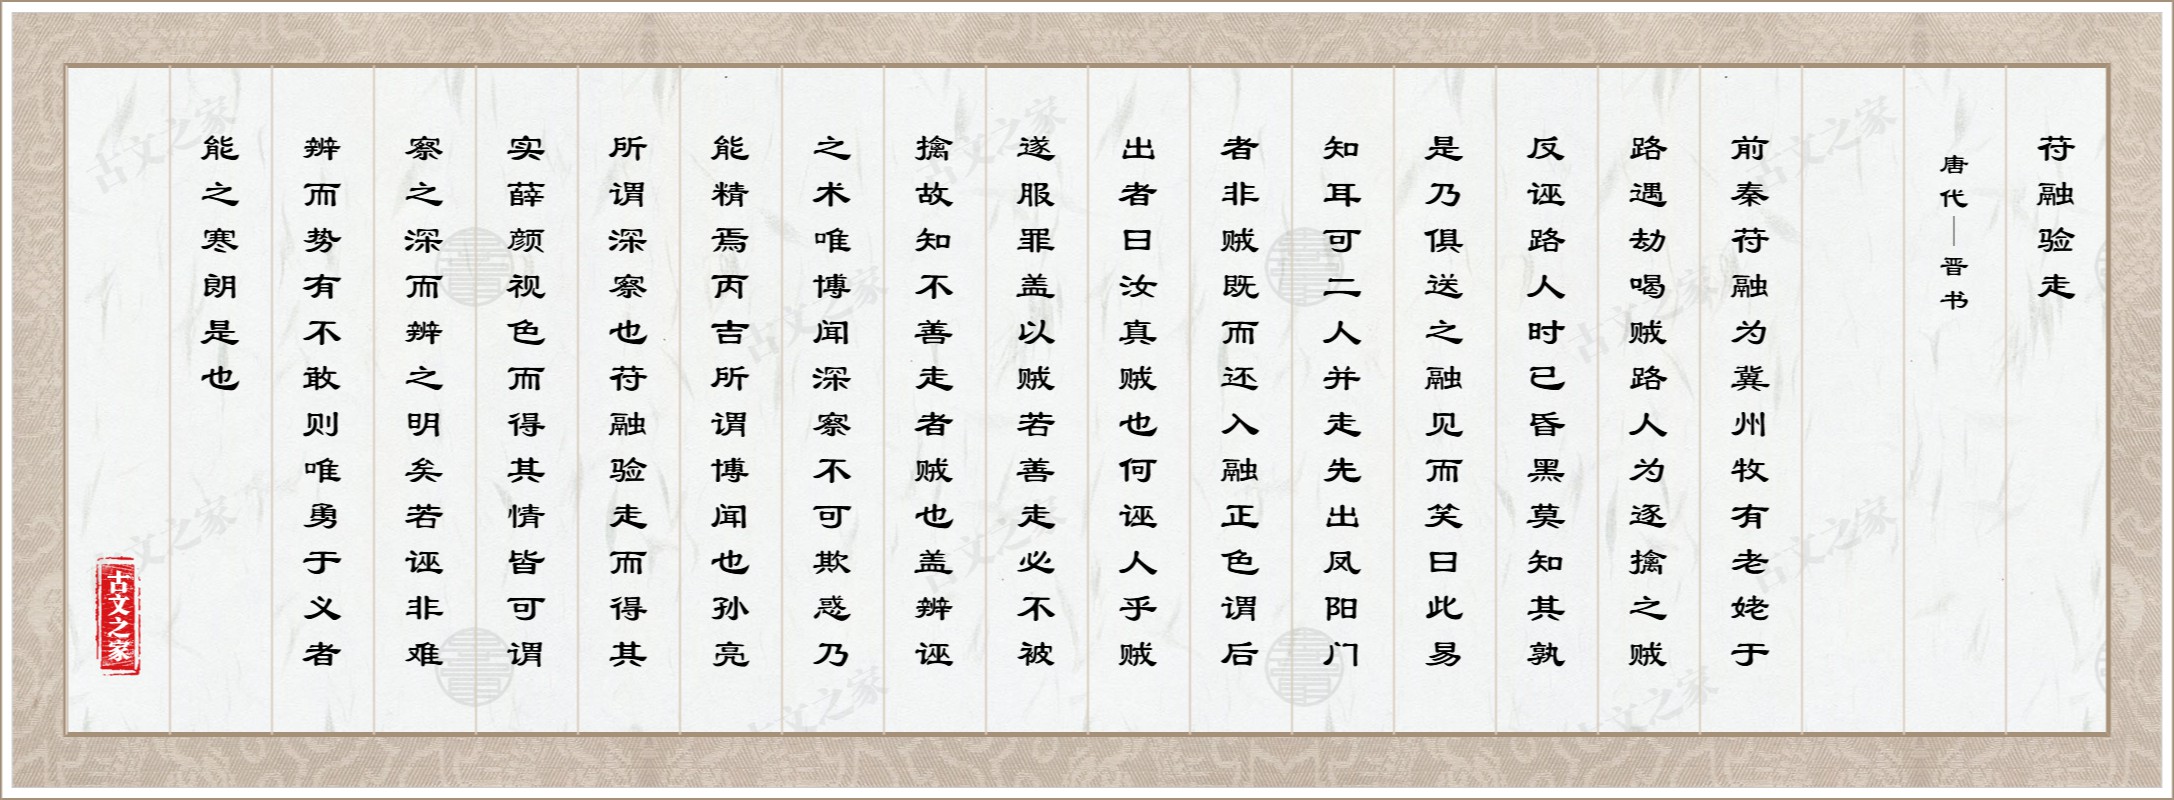 苻融验走
唐代｜晋书
前秦苻融为冀州牧有老姥于
路遇劫喝贼路人为逐擒之贼
反诬路人时已昏黑莫知其孰
是乃俱送之融见而笑曰此易
知耳可二人并走先出凤阳门
者非贼既而还入融正色谓后
出者曰汝真贼也何诬人乎贼
遂服罪盖以贼若善走必不被
擒故知不善走者贼也盖辨诬
之术唯博闻深察不可欺惑乃
能精焉丙吉所谓博闻也孙亮
所谓深察也苻融验走而得其
实薛颜视色而得其情皆可谓
察之深而辨之明矣若诬非难
辨而势有不敢则唯勇于义者
能之寒朗是也
古文之家